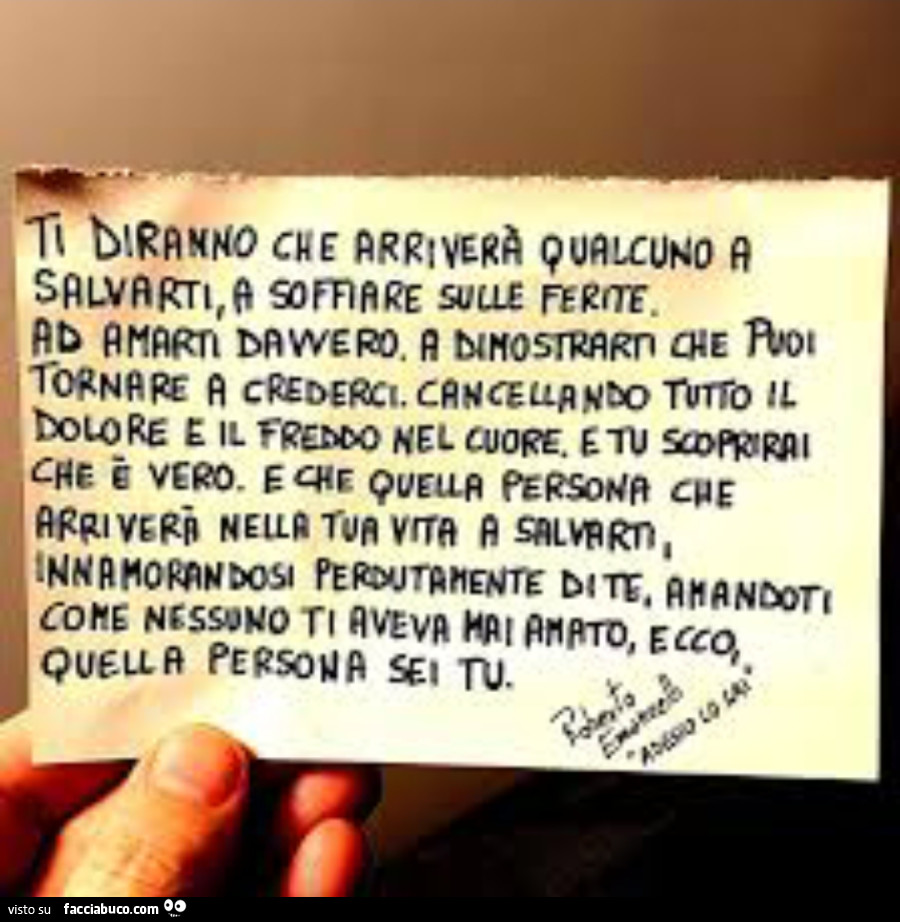 TI DIRANNO CHE ARRIVERÀ QUALCUNO A
SALVARTI, A SOFFIARE SULLE FERITE.
AD AMARTI DAVVERO. A DIMOSTRARTI CHE PUOI
TORNARE A CREDERCI. CANCELLANDO TUTTO IL
DOLORE E IL FREDDO NEL CUORE. E TU SCOPRIRAI
CHE È VERO. E CHE QUELLA PERSONA CHE
ARRIVERÀ NELLA TUA VITA A SALVARTI,
INNAMORANDOSI PERDUTAMENTE DI TE, AMANDOTI
COME NESSUNO TI AVEVA MAI AMATO, ECCO,
QUELLA PERSONA SEI TU.
Roberto
Emanuelli
"ADESSO LO SAI"
visto su facciabuco.com